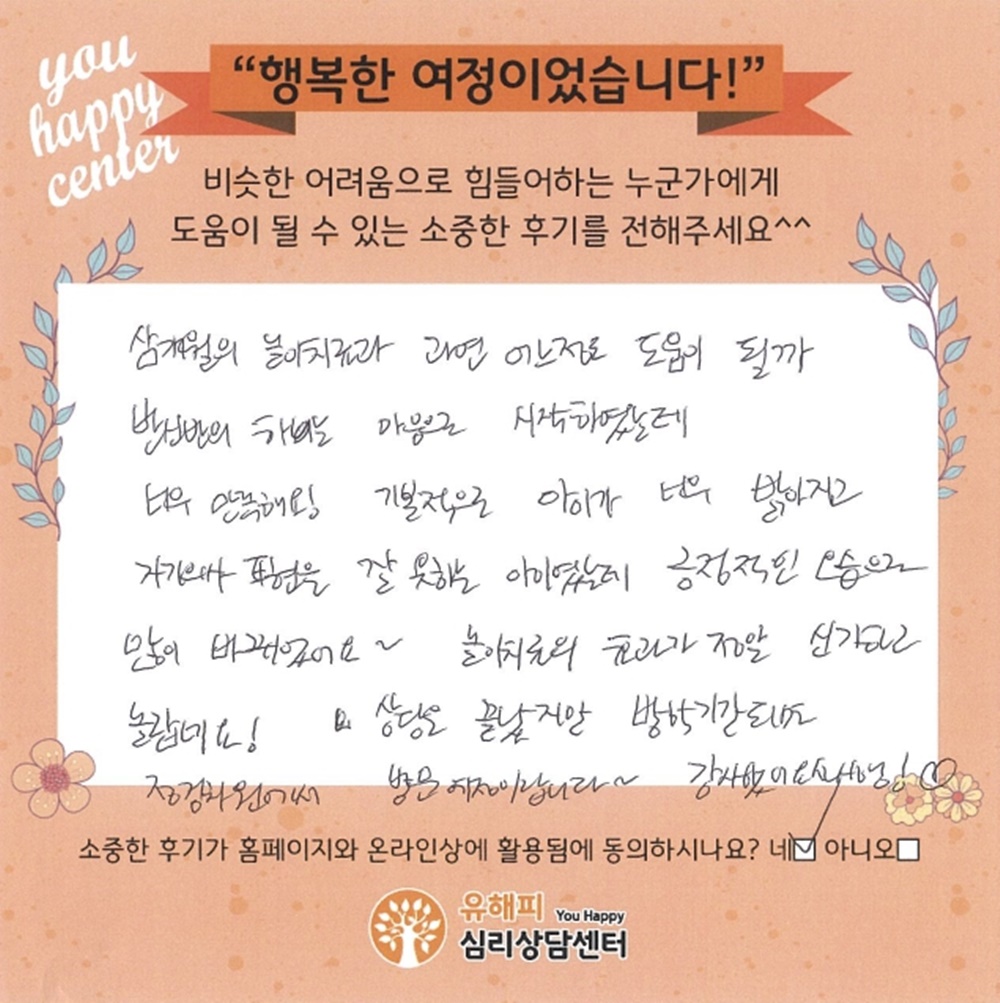 you
happy
center
“행복한 여정이었습니다!”
비슷한 어려움으로 힘들어하는 누군가에게
도움이 될 수 있는 소중한 후기를 전해주세요^^
삼개월의 놀이치료가 과연 어느정도 도움이 될까
반신반의 하는 마음으로 시작하였는데
너무 만족해요! 기본적으로 아이가 너무 밝아지고
자기의사 표현을 잘 못하는 아이였는데 긍정적인 모습으로
많이 바뀌었어요~ 놀이치료의 효과가 정말 신기하고
놀랍네요! 상담은 끝났지만 방학기간되면
점검차원에서 방문예정이랍니다~ 감사했어요 선생님!♡
소중한 후기가 홈페이지와 온라인상에 활용됨에 동의하시나요? 네☑ 아니오□
유해피 You Happy
심리상담센터